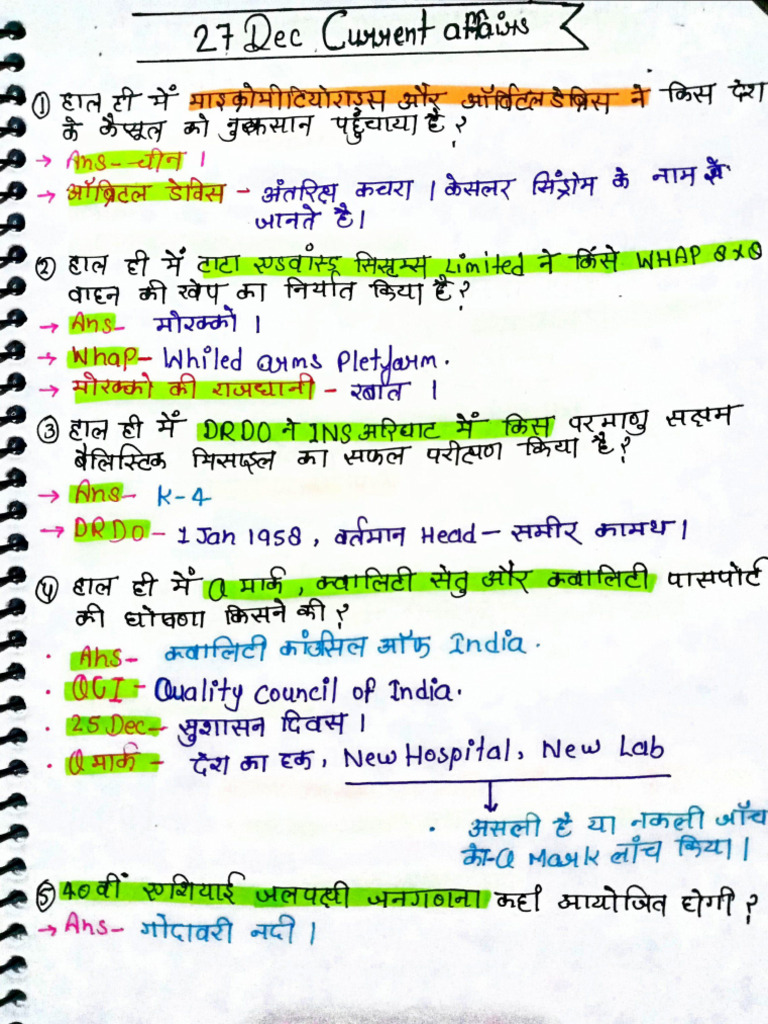 27 Dec Current affairs
① हाल ही में माइक्रोमीटियोराइड्स और ऑर्बिटल डेब्रिस ने किस देश
के कैप्सूल को नुकसान पहुँचाया है?
→ Ans-- चीन ।
→ ऑब्रिटल डेविस - अंतरिक्ष कचरा । केसलर सिंड्रोम के नाम से
जानते है।
② हाल ही में टाटा एडवांस्ड सिस्टम्स Limited ने किसे WHAP 8×8
वाहन की खेप का निर्यात किया है?
→ Ans- मोरक्को ।
→ Whap- Whiled arms Pletyarm.
→ मोरक्को की राजधानी - रबात ।
③ हाल ही में DRDO ने INS अरिघाट में किस परमाणु सक्षम
बैलिस्टिक मिसाइल का सफल परीक्षण किया है?
→ Ans- K-4
→ DRDO- 1 Jan 1958, वर्तमान Head - समीर कामथ।
④ हाल ही में Q मार्क, क्वालिटी सेतु और क्वालिटी पासपोर्ट
की घोषणा किसने की?
· Ans- क्वालिटी काउंसिल ऑफ India.
· QCI - Quality Council of India.
· 25 Dec- सुशासन दिवस ।
· Q मार्क - देश का हक, New Hospital, New Lab
↓
· असली है या नकली जाँच
के- Q Mark लाँच किया।
⑤ 40वीं एशियाई जलपक्षी जनगणना कहां आयोजित होगी?
→ Ans- गोदावरी नदी ।